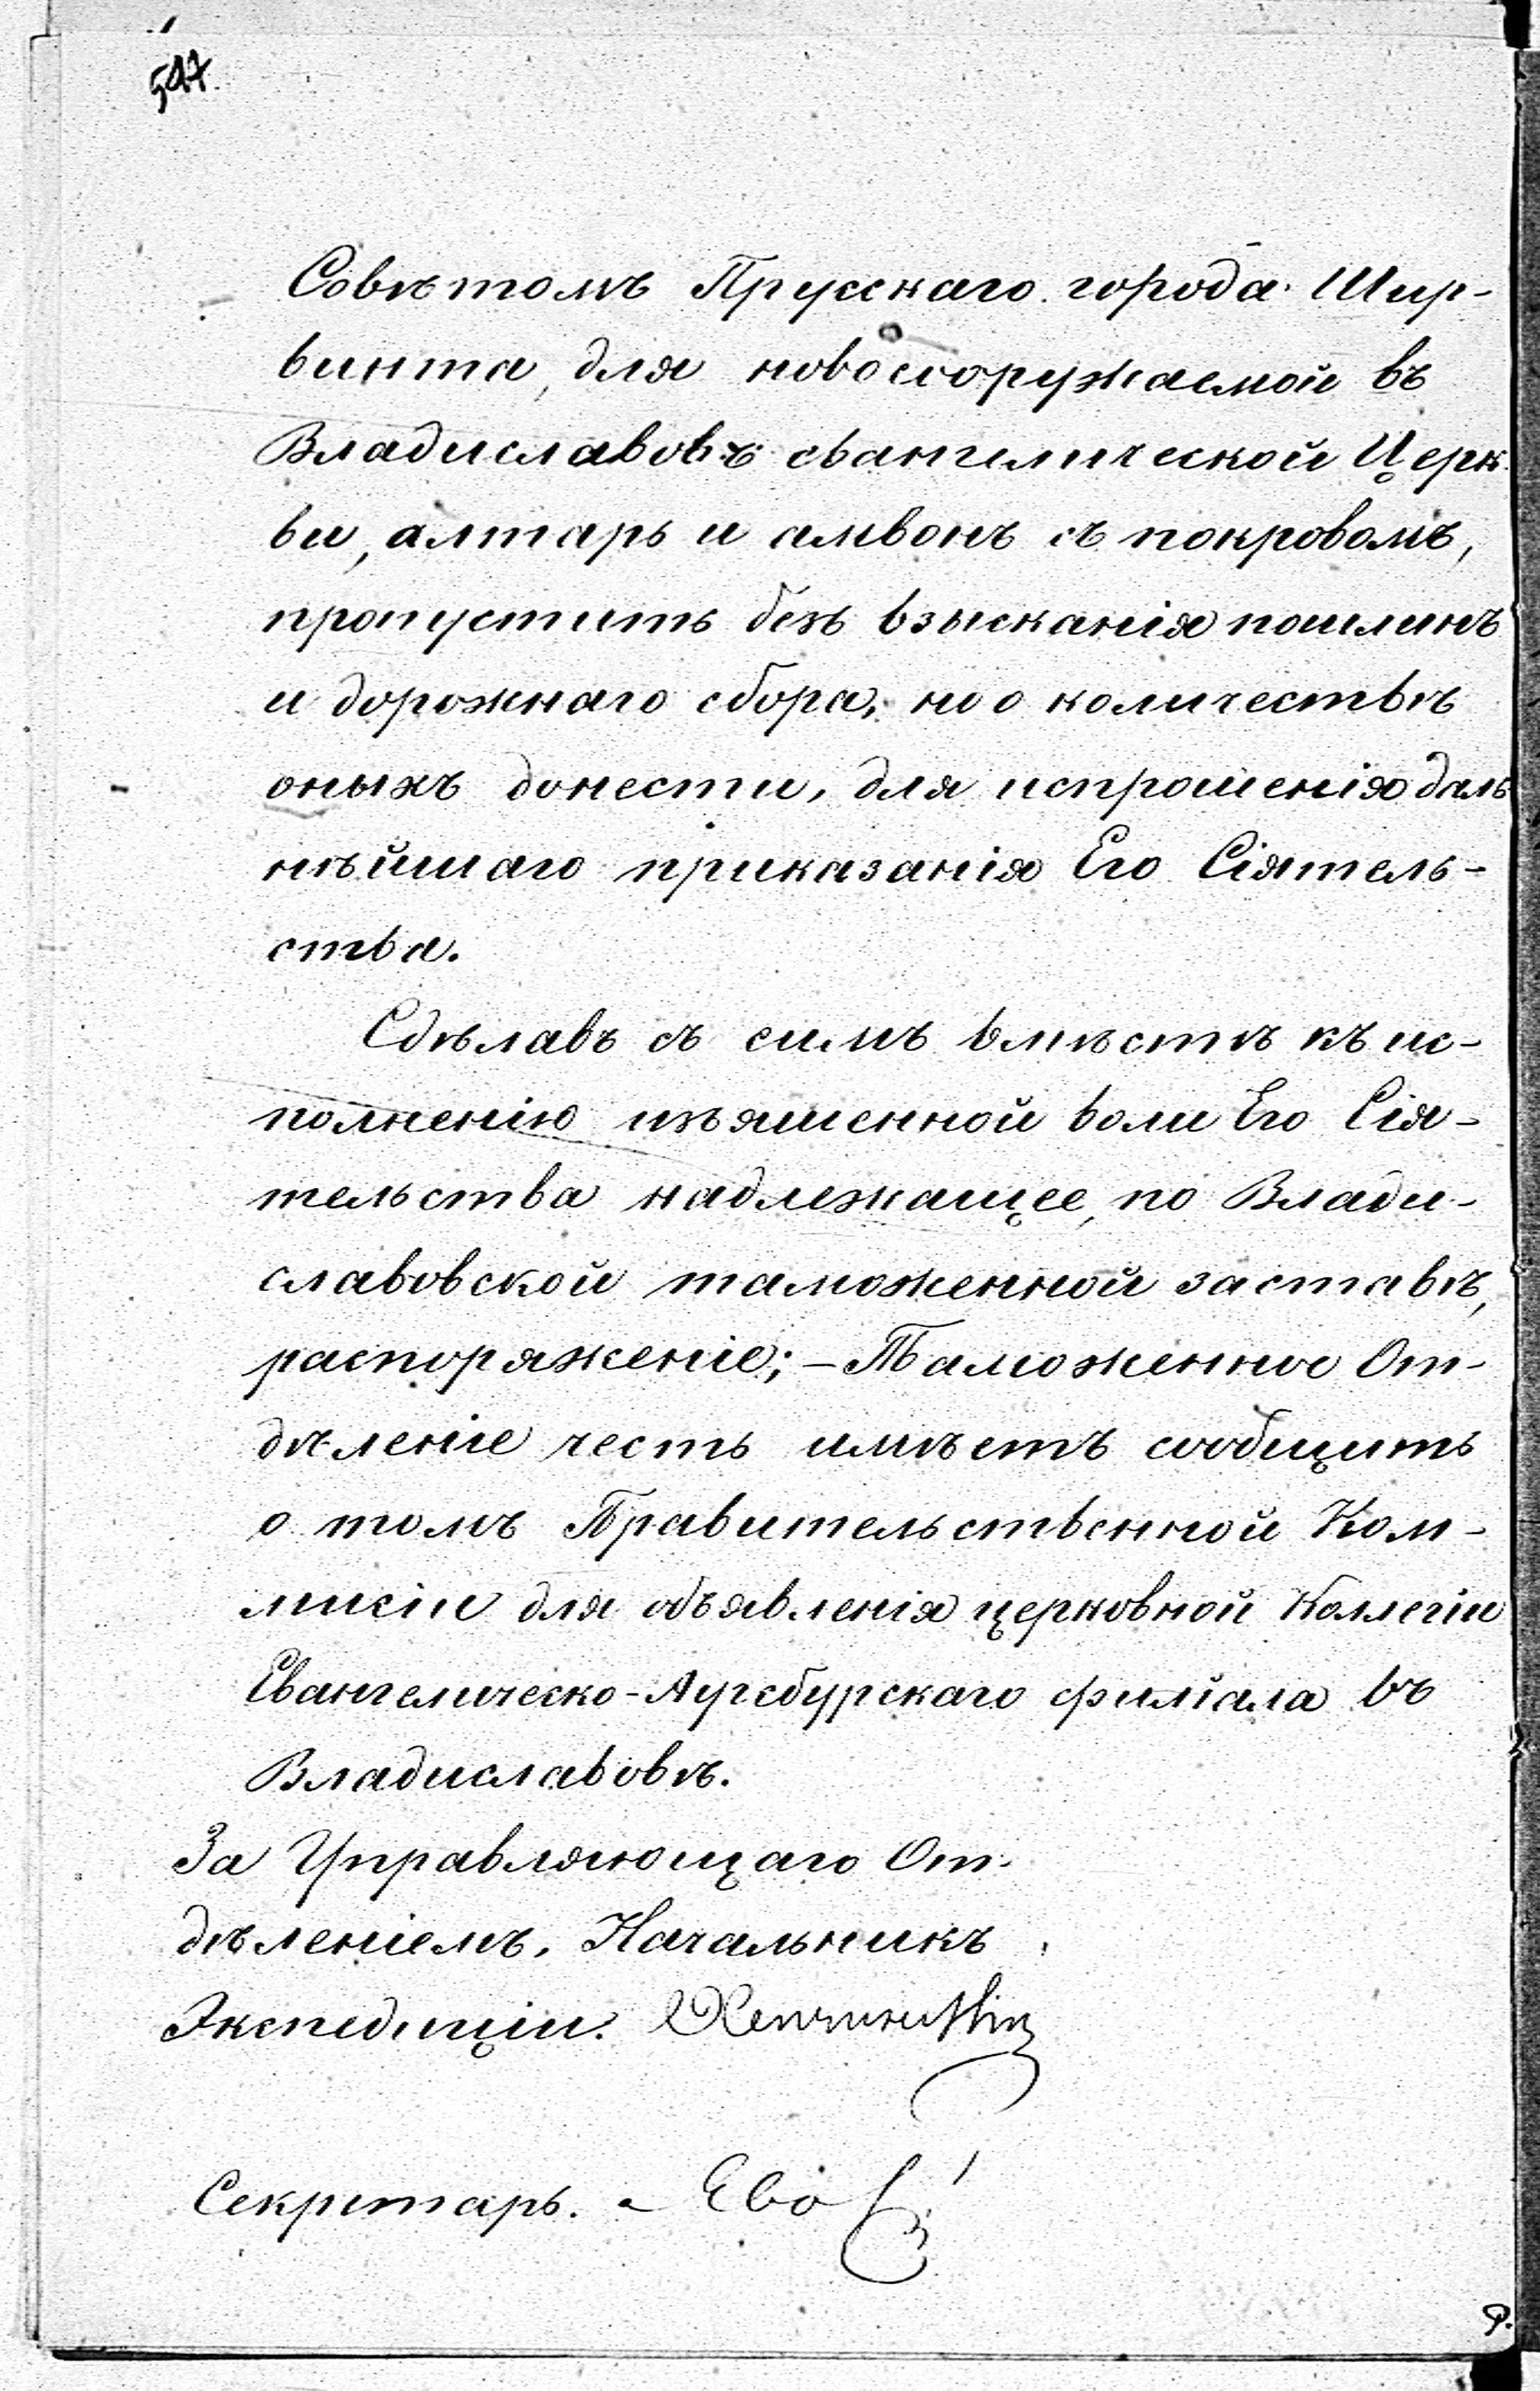 547.
Совѣтомъ Прусскаго города Шир-
винта, для новосооружаемой въ
Владиславовѣ евангелической Церк-
ви, алтарь и амвонъ съ покровомъ,
пропустить безъ взысканія пошлинъ
и дорожнаго сбора, но о количествѣ
оныхъ донести, для испрошенія даль
нѣйшаго приказанія Его Сіятель-
ства.
Сдѣлавъ съ симъ вмѣстѣ къ ис-
полненію изъясненной воли Его Сія-
тельства надлежащее, по Влади-
славовской таможенной заставѣ,
распоряженіе; – Таможенное От-
дѣленіе честь имѣетъ сообщить
о томъ Правительственной Ком-
мисіи для объявленія церковной Коллегіи
Евангелическо-Аугсбурскаго филіала въ
Владиславовѣ.
За Управляющаго От-
дѣленіемъ, Начальникъ
Экспедиціи.
Секретарь. -